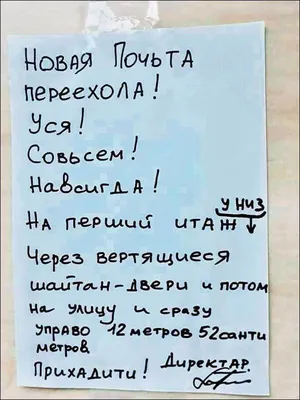 Новая Почьта
переехола!
Уся!
Совьсем!
Навсигда!
у низ
На перший итаж ↓
Через вертящиеся
шайтан-двери и потом
на улицу и сразу
управо 12 метров 52санти
метров
Прихадити! Директар.